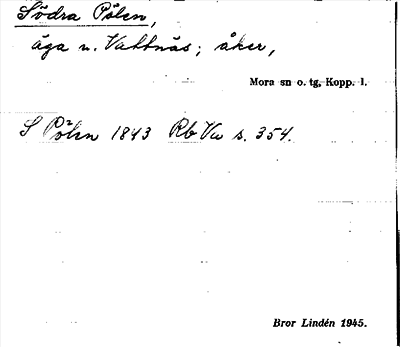 Södra Pölen,
äga n. Vattnäs; åker,
Mora sn o. tg, Kopp. l.
S Pölen 1843 Rb Vu s. 354.
Bror Lindén 1945.